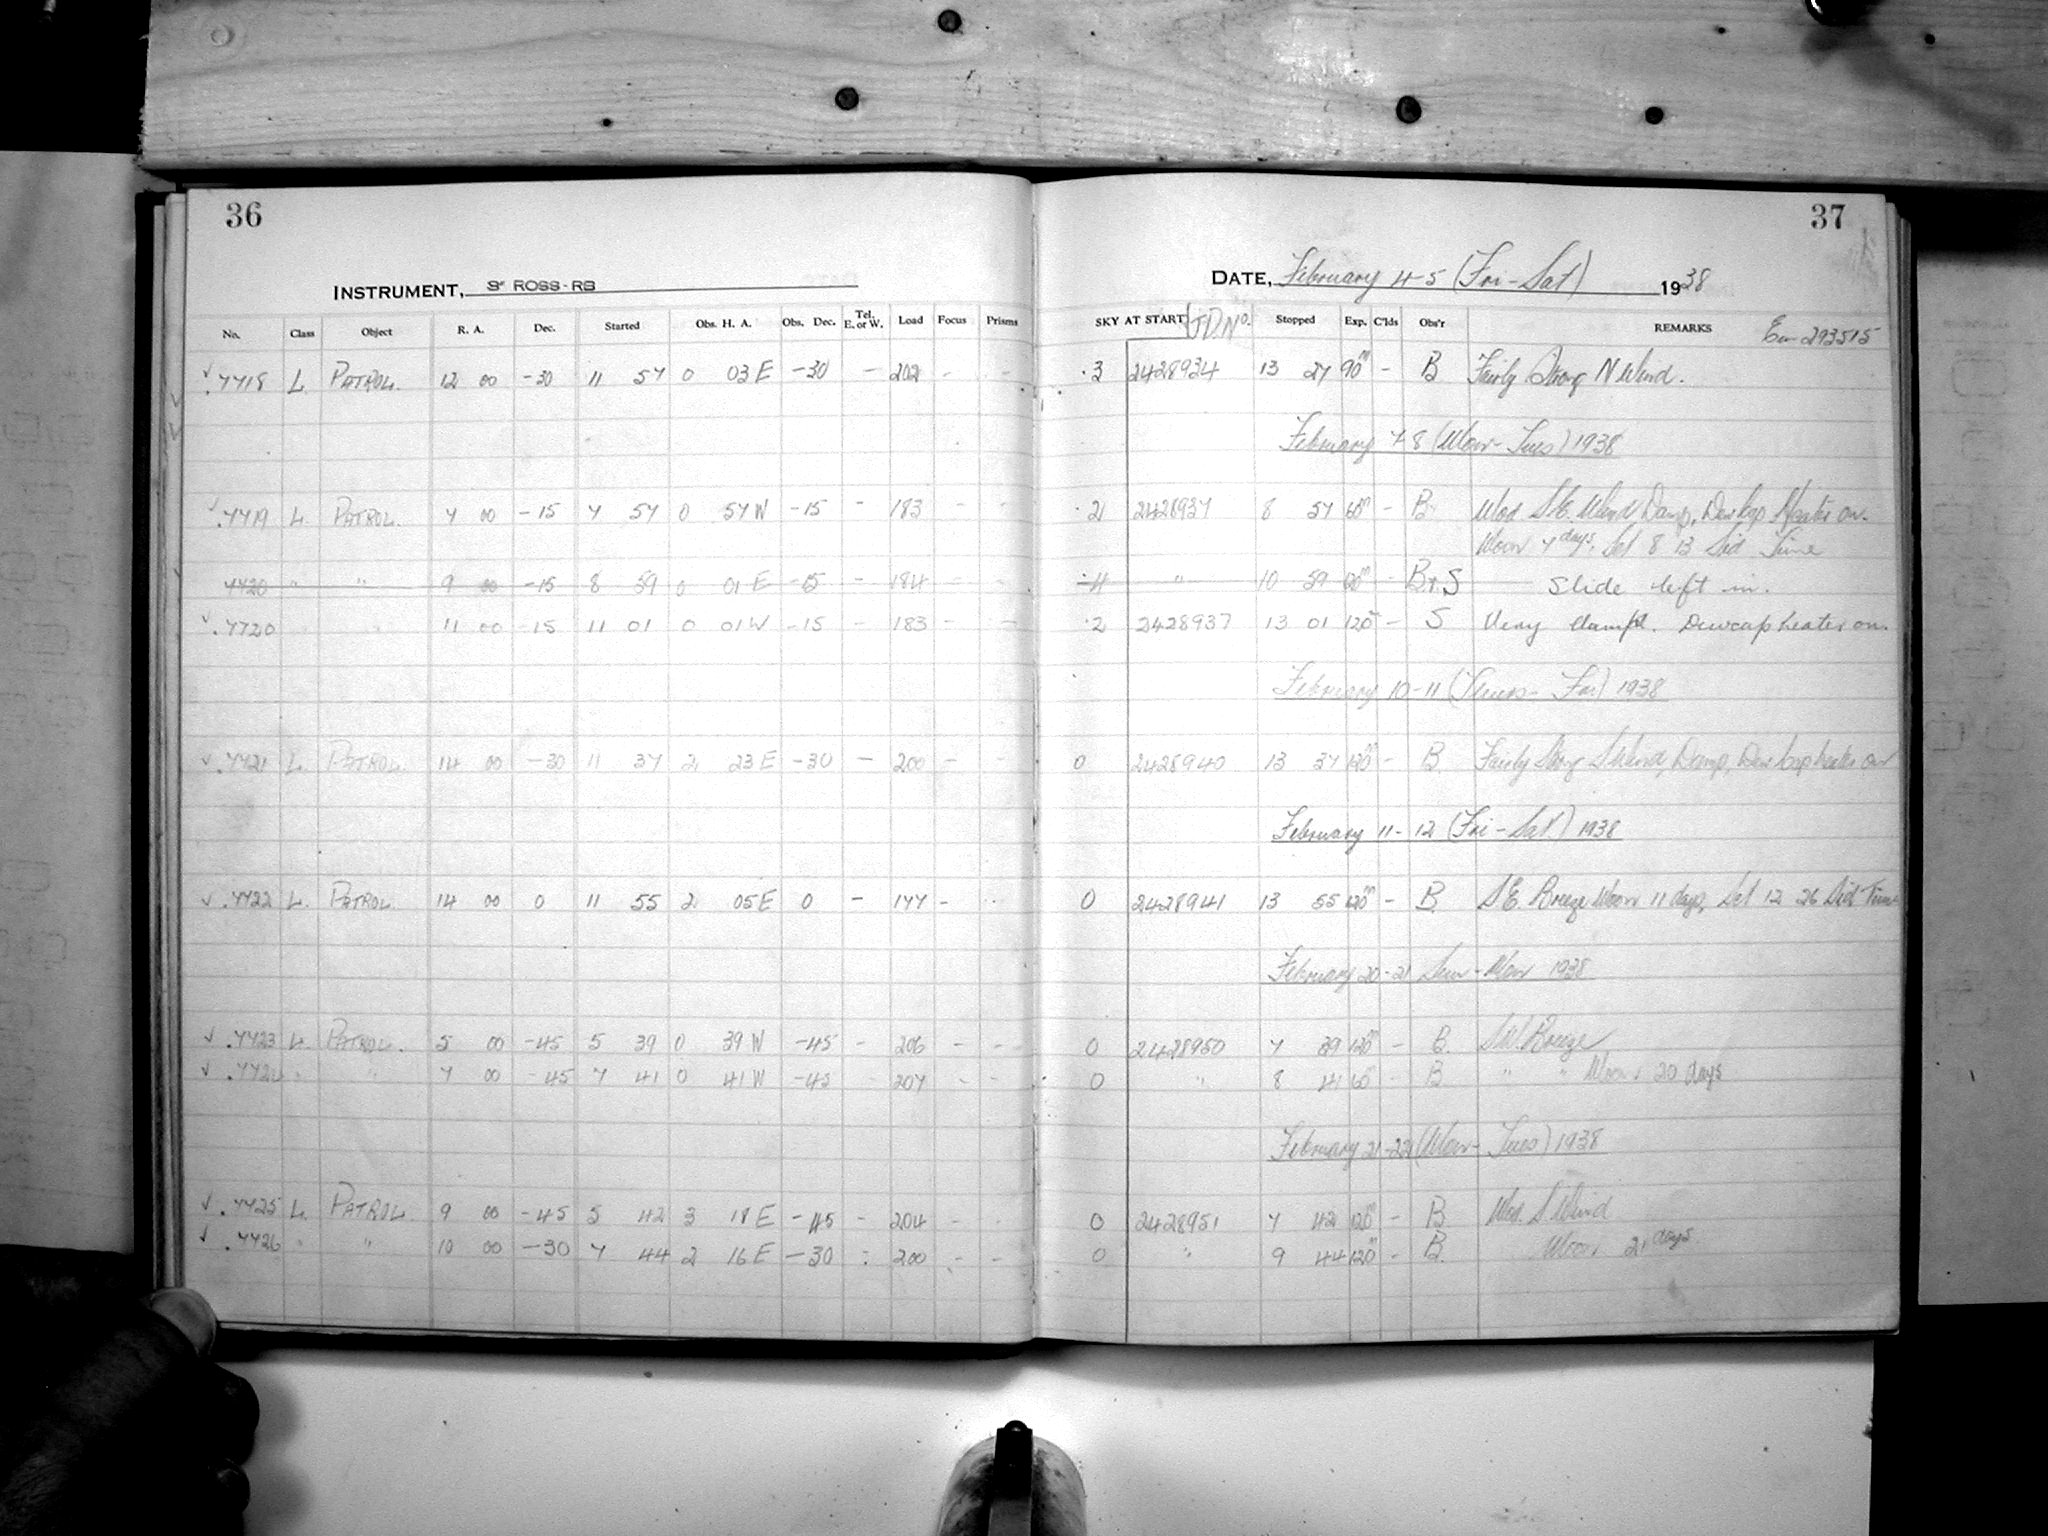 36
INSTRUMENT, 3" ROSS-RB
No. Class Object R. A. Dec. Started Obs. H. A. Obs. Dec. Tel. E. or W. Load Focus Prisms
.7718 L. PATROL. 12 00 -30 11 57 0 03 E -30 - 202 - -
.7719 L. PATROL. 7 00 -15 7 57 0 57 W -15 - 183 - -
7720 " " 9 00 -15 8 59 0 01 E -15 - 184 - -
.7720 " 11 00 -15 11 01 0 01 W -15 - 183 - -
.7721 L. PATROL. 14 00 -30 11 37 2 23 E -30 - 200 - -
.7722 L. PATROL. 14 00 0 11 55 2 05 E 0 - 177 - -
.7723 L. PATROL. 5 00 -45 5 39 0 39 W -45 - 206 - -
.7724 " " 7 00 -45 7 41 0 41 W -45 - 207 - -
.7725 L. PATROL. 9 00 -45 5 42 3 18 E -45 - 204 - -
.7726 " " 10 00 -30 7 44 2 16 E -30 - 200 - -
37
DATE, February 4-5 (Fri-Sat) 1938
SKY AT START J.D. No. Stopped Exp. C'lds Obs'r REMARKS
293515
.3 2428934 13 27 90m - B Fairly Strong N Wind.
February 7-8 (Mon-Tues) 1938
.2 2428937 8 57 60m - B. Mod S.E. Wind Damp, Dew Cap Heater on.
Moon 7 days, Set 8 13 Sid Time
" 10 59 - B+S Slide left in.
.2 2428937 13 01 120m - S Very damp. Dewcap heater on.
February 10-11 (Thurs-Fri) 1938
0 2428940 13 37 120m - B. Fairly Strong S Wind, Damp, Dew Cap heater on
February 11-12 (Fri-Sat) 1938
0 2428941 13 55 120m - B. S.E. Breeze Moon 11 days, Set 12 26 Sid Time
February 20-21 Sun-Mon 1938
0 2428950 7 39 120m - B. S.W. Breeze
0 " 8 41 60m - B " " Moon 20 days
February 21-22 (Mon-Tues) 1938
0 2428951 7 42 120m - B Mod. S Wind
0 " 9 44 120m - B. Moon 21 days